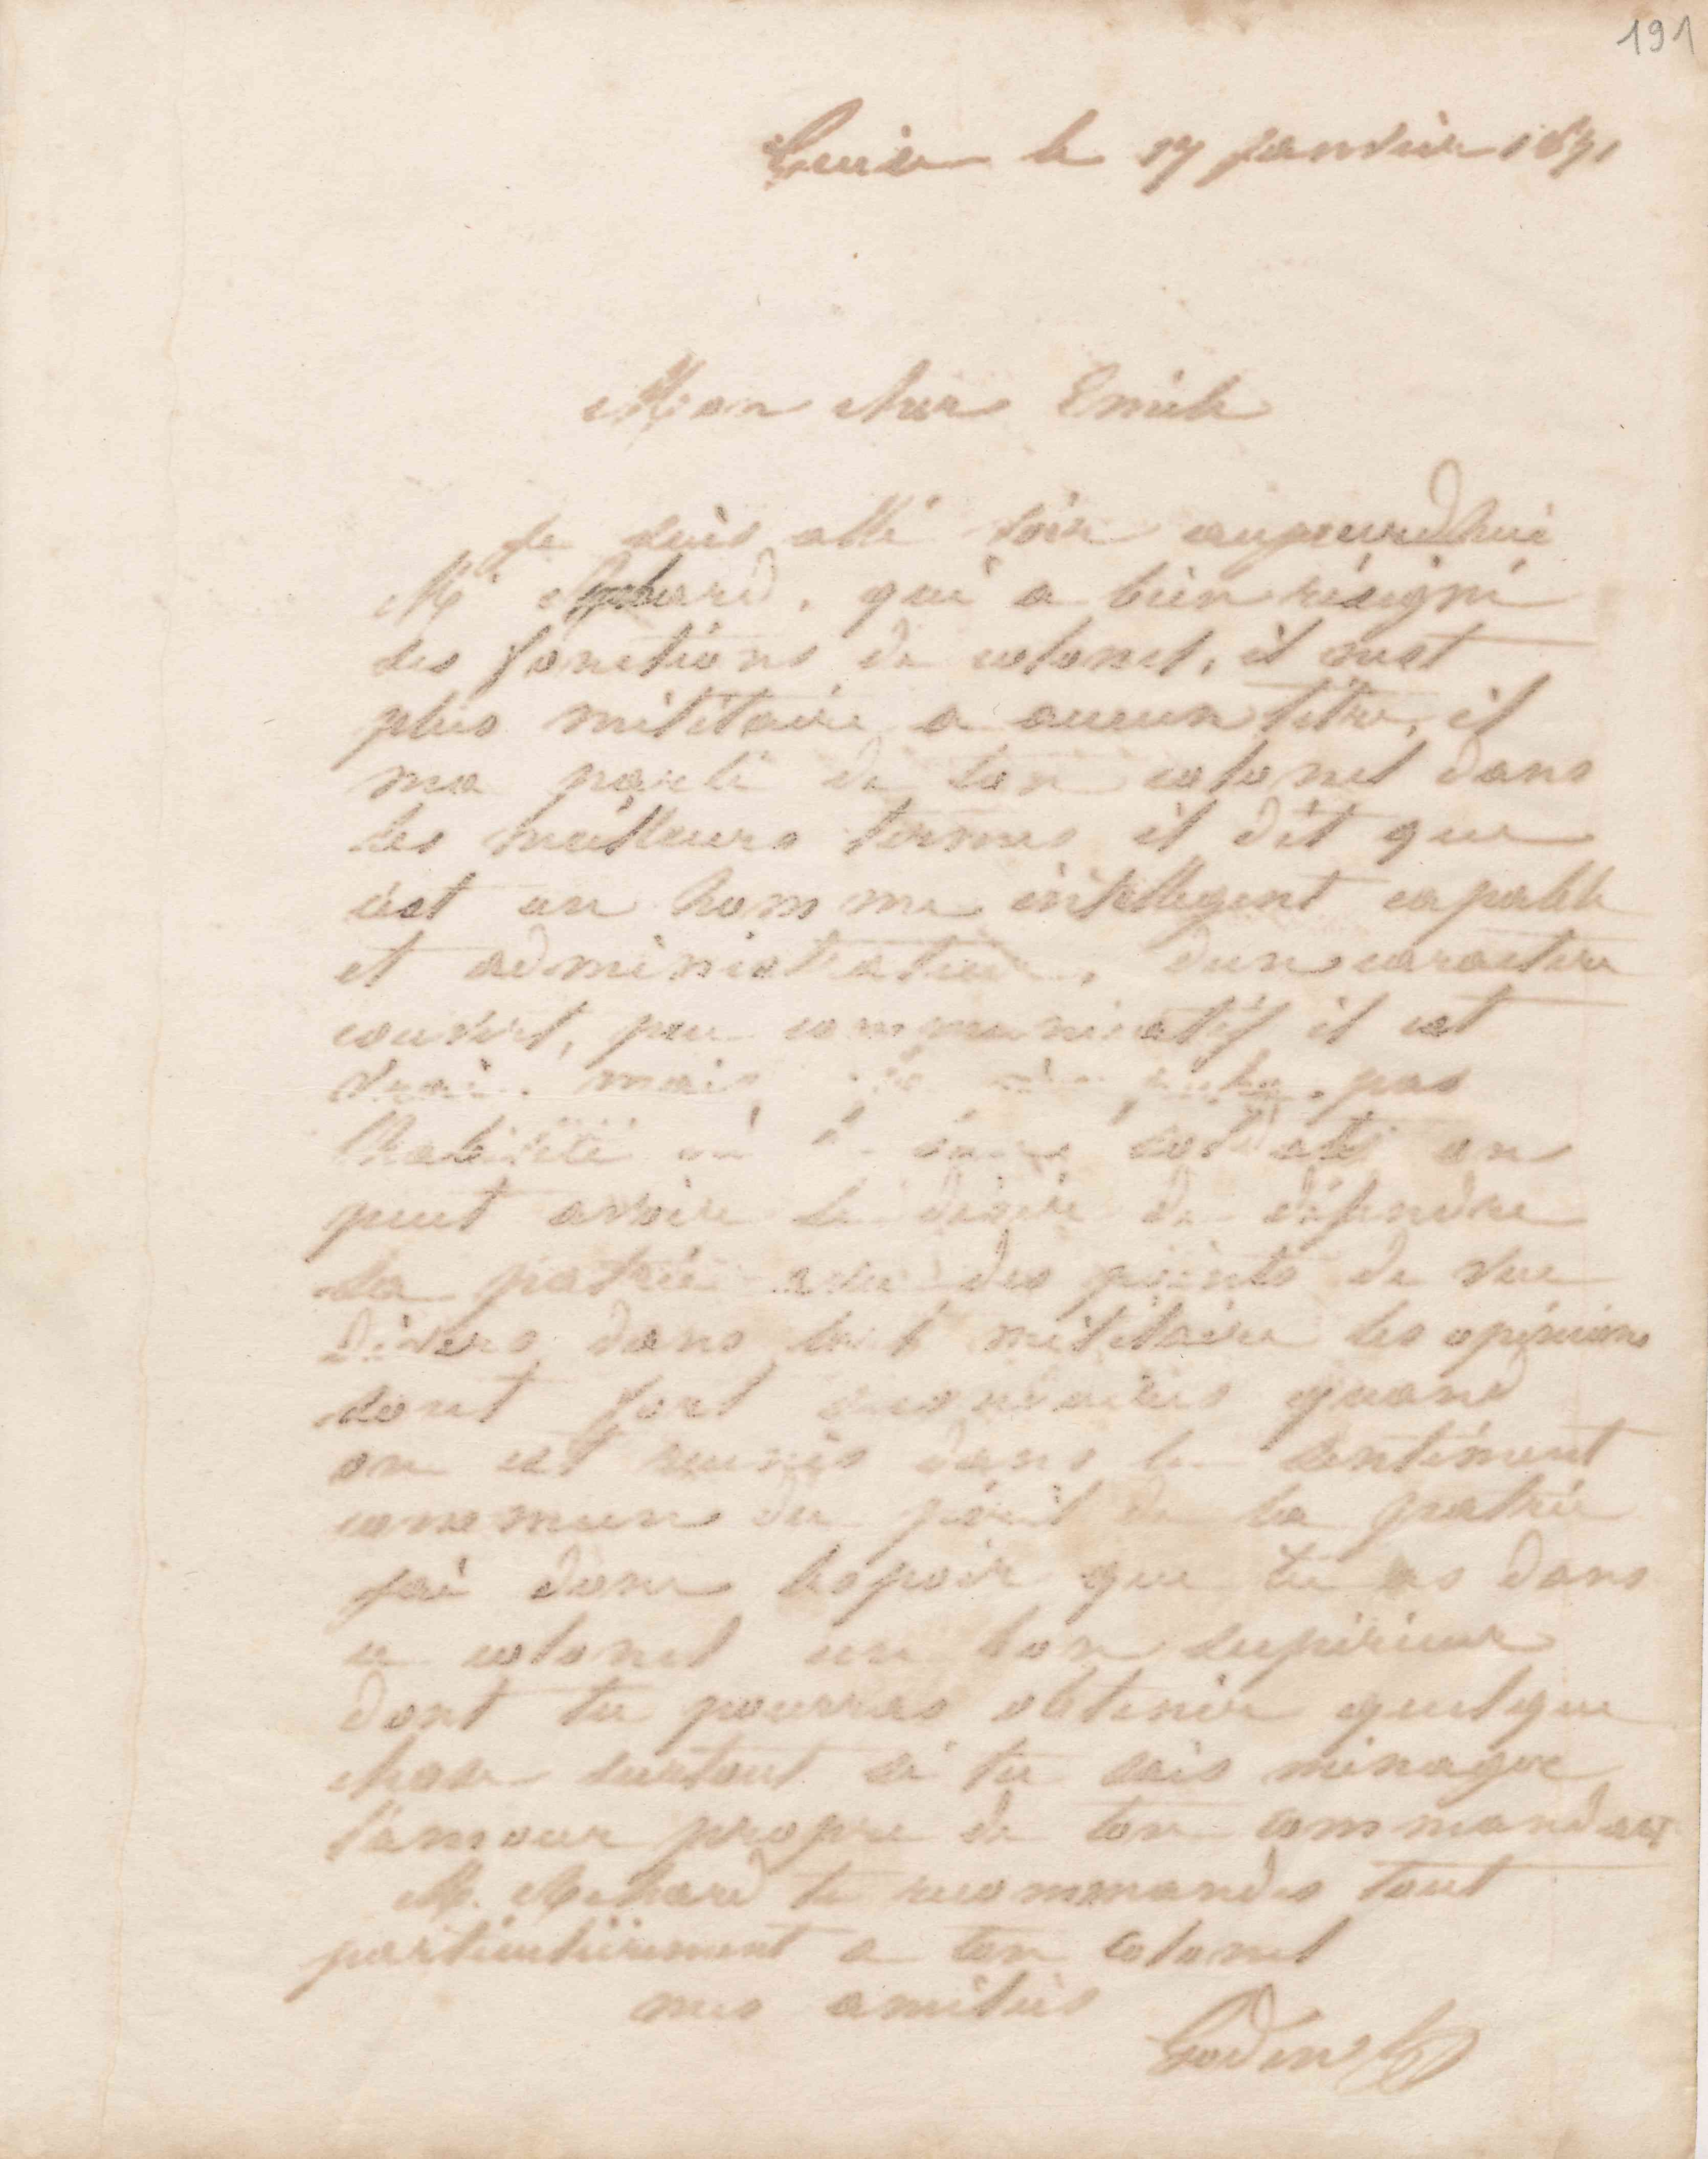 191
Guise le 17 janvier 1871
Mon cher Emile
Je suis allé voir aujourdhui
Mr qui a bien résigné
ses fonctions de colonel, il nest
plus militaire a aucun titre, il
ma parlé de ton colonel dans
les meilleurs termes il dit que
cest un homme intelligent capable
et administrateur, dun caractère
couvert, peu communicatif il est
vrai. mais pas
soldats on
peut avoir le désir de défendre
la patrie avec des points de vue
divers dans lart militaire les opinions
sont fort quand
on est réunis dans le sentiment
commun du péril de la patrie
jai donc lespoir que tu as dans
ce colonel un bon supérieur
dont tu pourras obtenir quelque
chose surtout si tu sais ménager
l'amour propre de ton commandant
M. te recommandes tout
particulièrement a ton colonel
mes amitiés
Godin